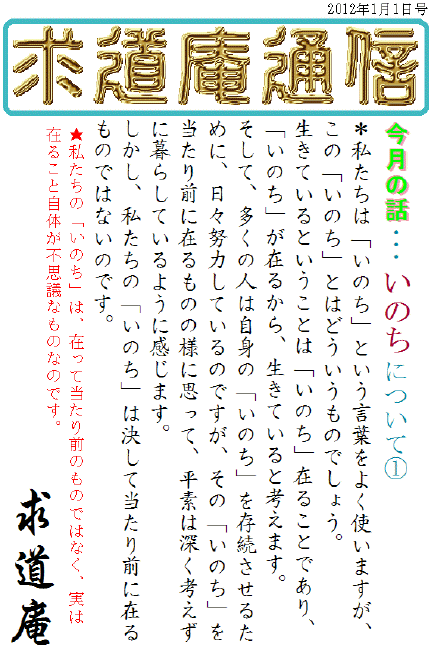 2012年1月1日号
求道庵通信
今月の話・・・いのちについて①
＊私たちは「いのち」という言葉をよく使いますが、
この「いのち」とはどういうものでしょう。
生きているということは「いのち」在ることであり、
「いのち」が在るから、生きていると考えます。
そして、多くの人は自身の「いのち」を存続させるた
めに、日々努力しているのですが、その「いのち」を
当たり前に在るものの様に思って、平素は深く考えず
に暮らしているように感じます。
しかし、私たちの「いのち」は決して当たり前に在る
ものではないのです。
★私たちの「いのち」は、在って当たり前のものではなく、実は
在ること自体が不思議なものなのです。
求道庵